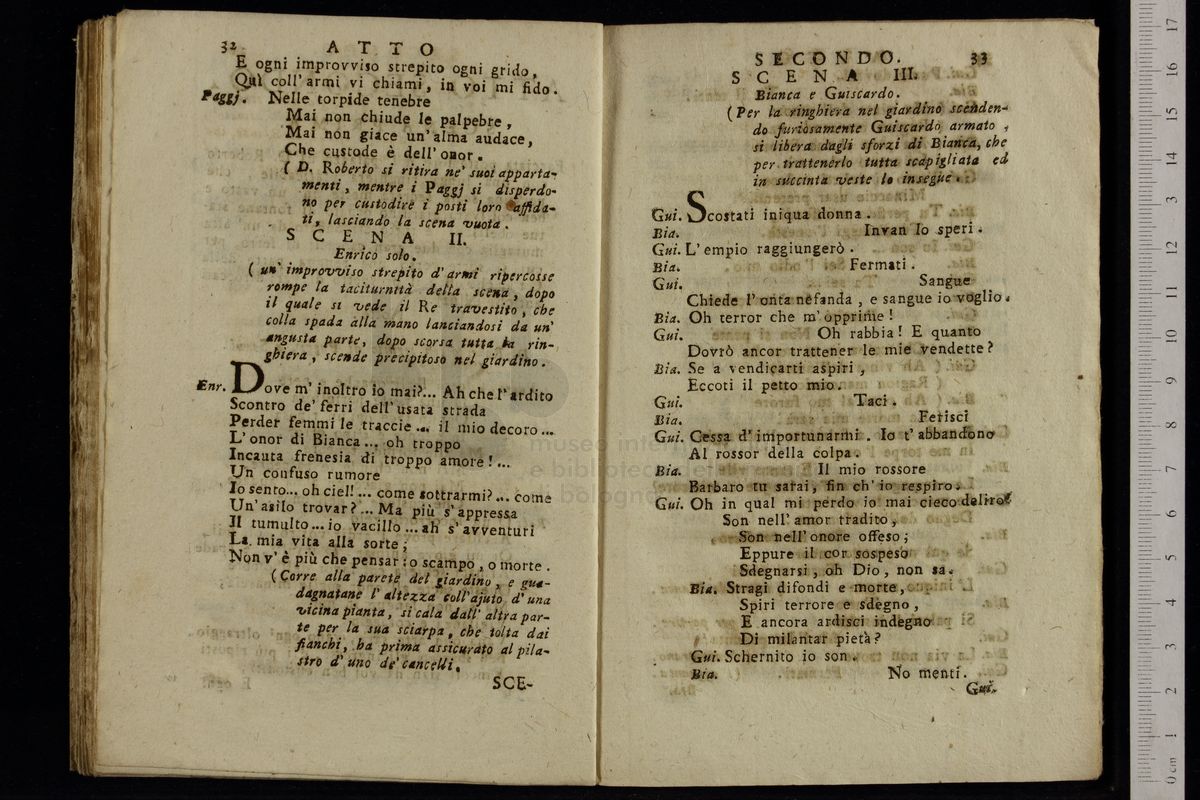 32 ATTO
E ogni improvviso strepito ogni grido,
Quì coll' armi vi chiami, in voi mi fido.
Paggj. Nelle torpide tenebre
Mai non chiude le palpebre,
Mai non giace un' alma audace,
Che custode è dell' onor.
( D. Roberto si ritira ne' suoi apparta-
menti, mentre i Paggj si disperdo-
no per custodire i posti loro affida-
ti, lasciando la scena vuota.
SCENA II.
Enrico solo.
( un' improvviso strepito d' armi ripercosse
rompe la taciturnità della scena, dopo
il quale si vede il Re travestito, che
colla spada alla mano lanciandosi da un'
angusta parte, dopo scorsa tutta la rin-
ghiera, scende precipitoso nel giardino.
Enr. Dove m' inoltro io mai?... Ah che l' ardito
Scontro de' ferri dell' usata strada
Perder femmi le traccie ... il mio decoro ...
L' onor di Bianca ... oh troppo
Incauta frenesia di troppo amore! ...
Un confuso rumore
Io sento... oh ciel! ... come sottrarmi? ... come
Un' asilo trovar? ... Ma più s' appressa
Il tumulto ... io vacillo ... ah s' avventuri
La mia vita alla sorte;
Non v' è più che pensar: o scampo, o morte.
(Corre alla parete del giardino, e gua-
dagnatane l' altezza coll' ajuto d' una
vicina pianta, si cala dall' altra par-
te per la sua sciarpa, che tolta dai
fianchi, ha prima assicurato al pila-
stro d' uno de' cancelli.
SCE-
SECONDO. 33
SCENA III.
Bianca e Guiscardo.
(Per la ringhiera nel giardino scenden-
do furiosamente Guiscardo armato,
si libera dagli sforzi di Bianca, che
per trattenerlo tutta scapigliata ed
in succinta veste lo insegue.
Gui. Scostati iniqua donna.
Bia. Invan lo speri.
Gui. L' empio raggiungerò.
Bia. Fermati.
Gui. Sangue
Chiede l' onta nefanda, e sangue io voglio.
Bia. Oh terror che m' opprime!
Gui. Oh rabbia! E quanto
Dovrò ancor trattener le mie vendette?
Bia. Se a vendicarti aspiri,
Eccoti il petto mio.
Gui. Taci.
Bia. Ferisci
Gui. Cessa d' importunarmi. Io t' abbandono
Al rossor della colpa.
Bia. Il mio rossore
Barbaro tu sarai, fin ch' io respiro.
Gui. Oh in qual mi perdo io mai cieco deliro!
Son nell' amor tradito,
Son nell' onore offeso;
Eppure il cor sospeso
Sdegnarsi, oh Dio, non sa.
Bia. Stragi difondi e morte,
Spiri terrore e sdegno,
E ancora ardisci indegno
Di milantar pietà?
Gui. Schernito io son.
Bia. No menti.
Gui.